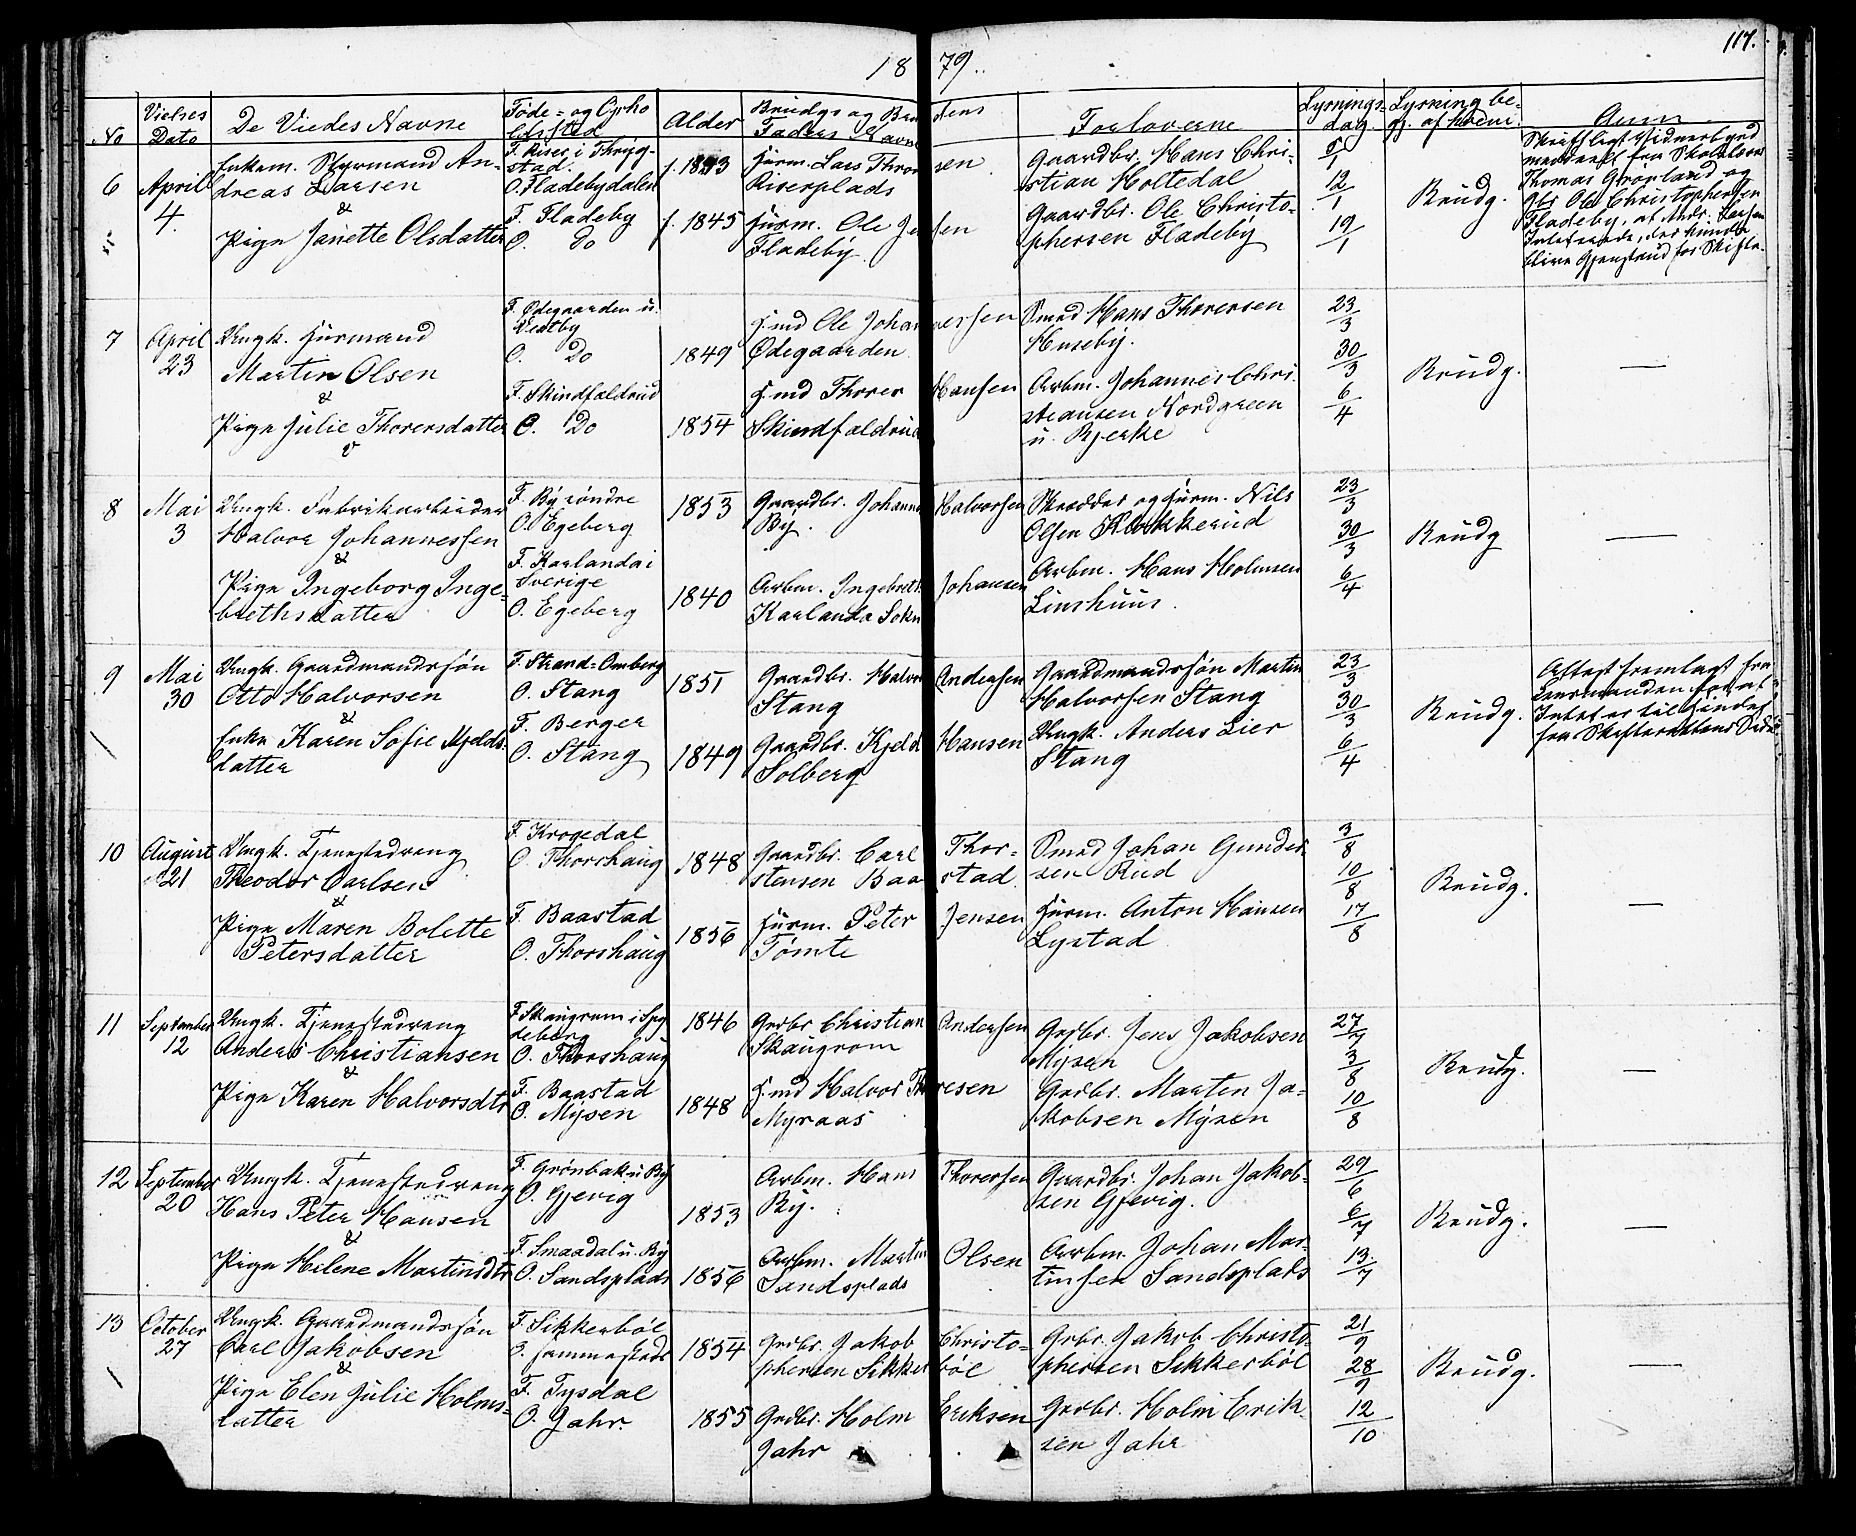 117.
18 79.
No
Vielses Dato
De Viedes Navne
Føde- og Opholdssted
Alder
Brudgs og Brudens Faders Navn
Forloverne
Lyrnings-dag.
Lysning beg. af hvem.
Anm.
6
April 4.
Enkem. Styrmand Andreas Larsen
&
Pige Janette Olsdatter
F. Riser i Thrygstad.
O. Fladebydalen
F. Fladeby
O. Do
f. 1843
f. 1845
Husm. Lars Thronsen
Riserplads
Husm. Ole Jensen
Fladeby.
Gaardbr. Hans Christian Holtedal
Gaardbr. Ole Christophersen Fladeby
5/1
12/1
19/1
Brudg.
Skriftligt Vidnesbyrd
meddeelt fra Skolelærer
Thomas Grønland og
Gbr Ole Christophersen
Fladeby, at Andr. Larsen
Intet eiede, der kunde
blive Gjenstand for Skifte.
7
April 23
Ungk. Husmand
Martin Olsen
&
Pige Julie Thorersdatter
F. Ødegaarden u. Vestby
O. Do
F. Skindfaldrud
O. Do
1849
1854
H.md Ole Johannessen
Ødegaarden
H.md Thorer Hansen
Skindfaldrud
Smed Hans Thorersen
Huseby.
Arbm. Johannes Christiansen Nordgreen
u. Bjerke
23/3
30/3
6/4
Brudg.
—
8
Mai 3
Ungk. Fabrikarbeider
Halvor Johannessen
&
Pige Ingeborg Ingebrethsdatter
F. By søndre
O. Egeberg
F. Karlanda i Sverige
O. Egeberg
1853
1840
Gaardbr. Johannes Halvorsen
By.
Arbm. Ingebreth Johansen
Karlanda Sokn
Skrædder og Husm. Nils
Olsen Klokkerud
Arbm. Hans Holmsen
Linshuus.
23/3
30/3
6/4
Brudg
—
9
Mai 30
Ungk. Gaardmandssøn
Otto Halvorsen
&
Enke Karen Sofie Kjeldsdatter
F. Strand-Omberg
O. Stang
F. Berger
O. Stang
1851
1849
Gaardbr. Halvor Andersen
Stang
Gaardbr. Kjeld Hansen
Solberg
Gaardmandssøn Martin
Halvorsen Stang
Ungk. Anders Lier
Stang
23/3
30/3
6/4
Brudg.
Attest fremlagt fra
Lensmanden for at
Intet er til Hinder
fra Skifterettens Side
10
August 21
Ungk. Tjenestedreng
Theodor Carlsen
&
Pige Maren Bolette
Petersdatter
F. Krogedal
O. Thorshaug
F. Baastad
O. Thorshaug
1848
1856
Gaardbr. Carl Thorstensen Baastad
Husm. Peter Jensen
Tømte
Smed Johan Gundersen Rud
Husm. Anton Hansen
Lystad
3/8
10/8
17/8
Brudg.
—
11
September 12
Ungk. Tjenestedreng
Anders Christiansen
&
Pige Karen Halvorsdtr
F. Skaugrum i Spydeberg
O. Thorshaug
F. Baastad
O. Mysen
1846
1848
Grdbr Christian Andersen
Skaugrom
H.md Halvor Thoresen
Myraas
Grdbr. Jens Jakobsen
Mysen
Grdbr. Marten Jakobsen Mysen
27/7
3/8
10/8
Brudg.
—
12
September 20
Ungk. Tjenestedreng
Hans Peter Hansen
&
Pige Helene Martinsdtr
F. Grønbak u. By
O. Gjevig
F. Smaadal u. By
O. Sandsplads
1853
1856
Arbm. Hans Thorersen
By.
Arbm. Martin Olsen
Sandsplads
Gaardbr. Johan Jakobsen Gjevig.
Arbm. Johan Martinsen Sandsplads
29/6
6/7
13/7
Brudg.
—
13
October 27
Ungk. Gaardmandssøn
Carl Jakobsen
&
Pige Elen Julie Holmsdatter
F. Sikkerbøl
O. sammesteds
F. Tysdal
O. Jahr.
1854
1855
Grdbr. Jakob Christophersen Sikkerbøl
Grdbr. Holm Eriksen
Jahr
Grbr. Jakob Christophersen Sikkerbøl
Grdbr. Holm Eriksen Jahr
21/9
28/9
12/10
Brudg.
—